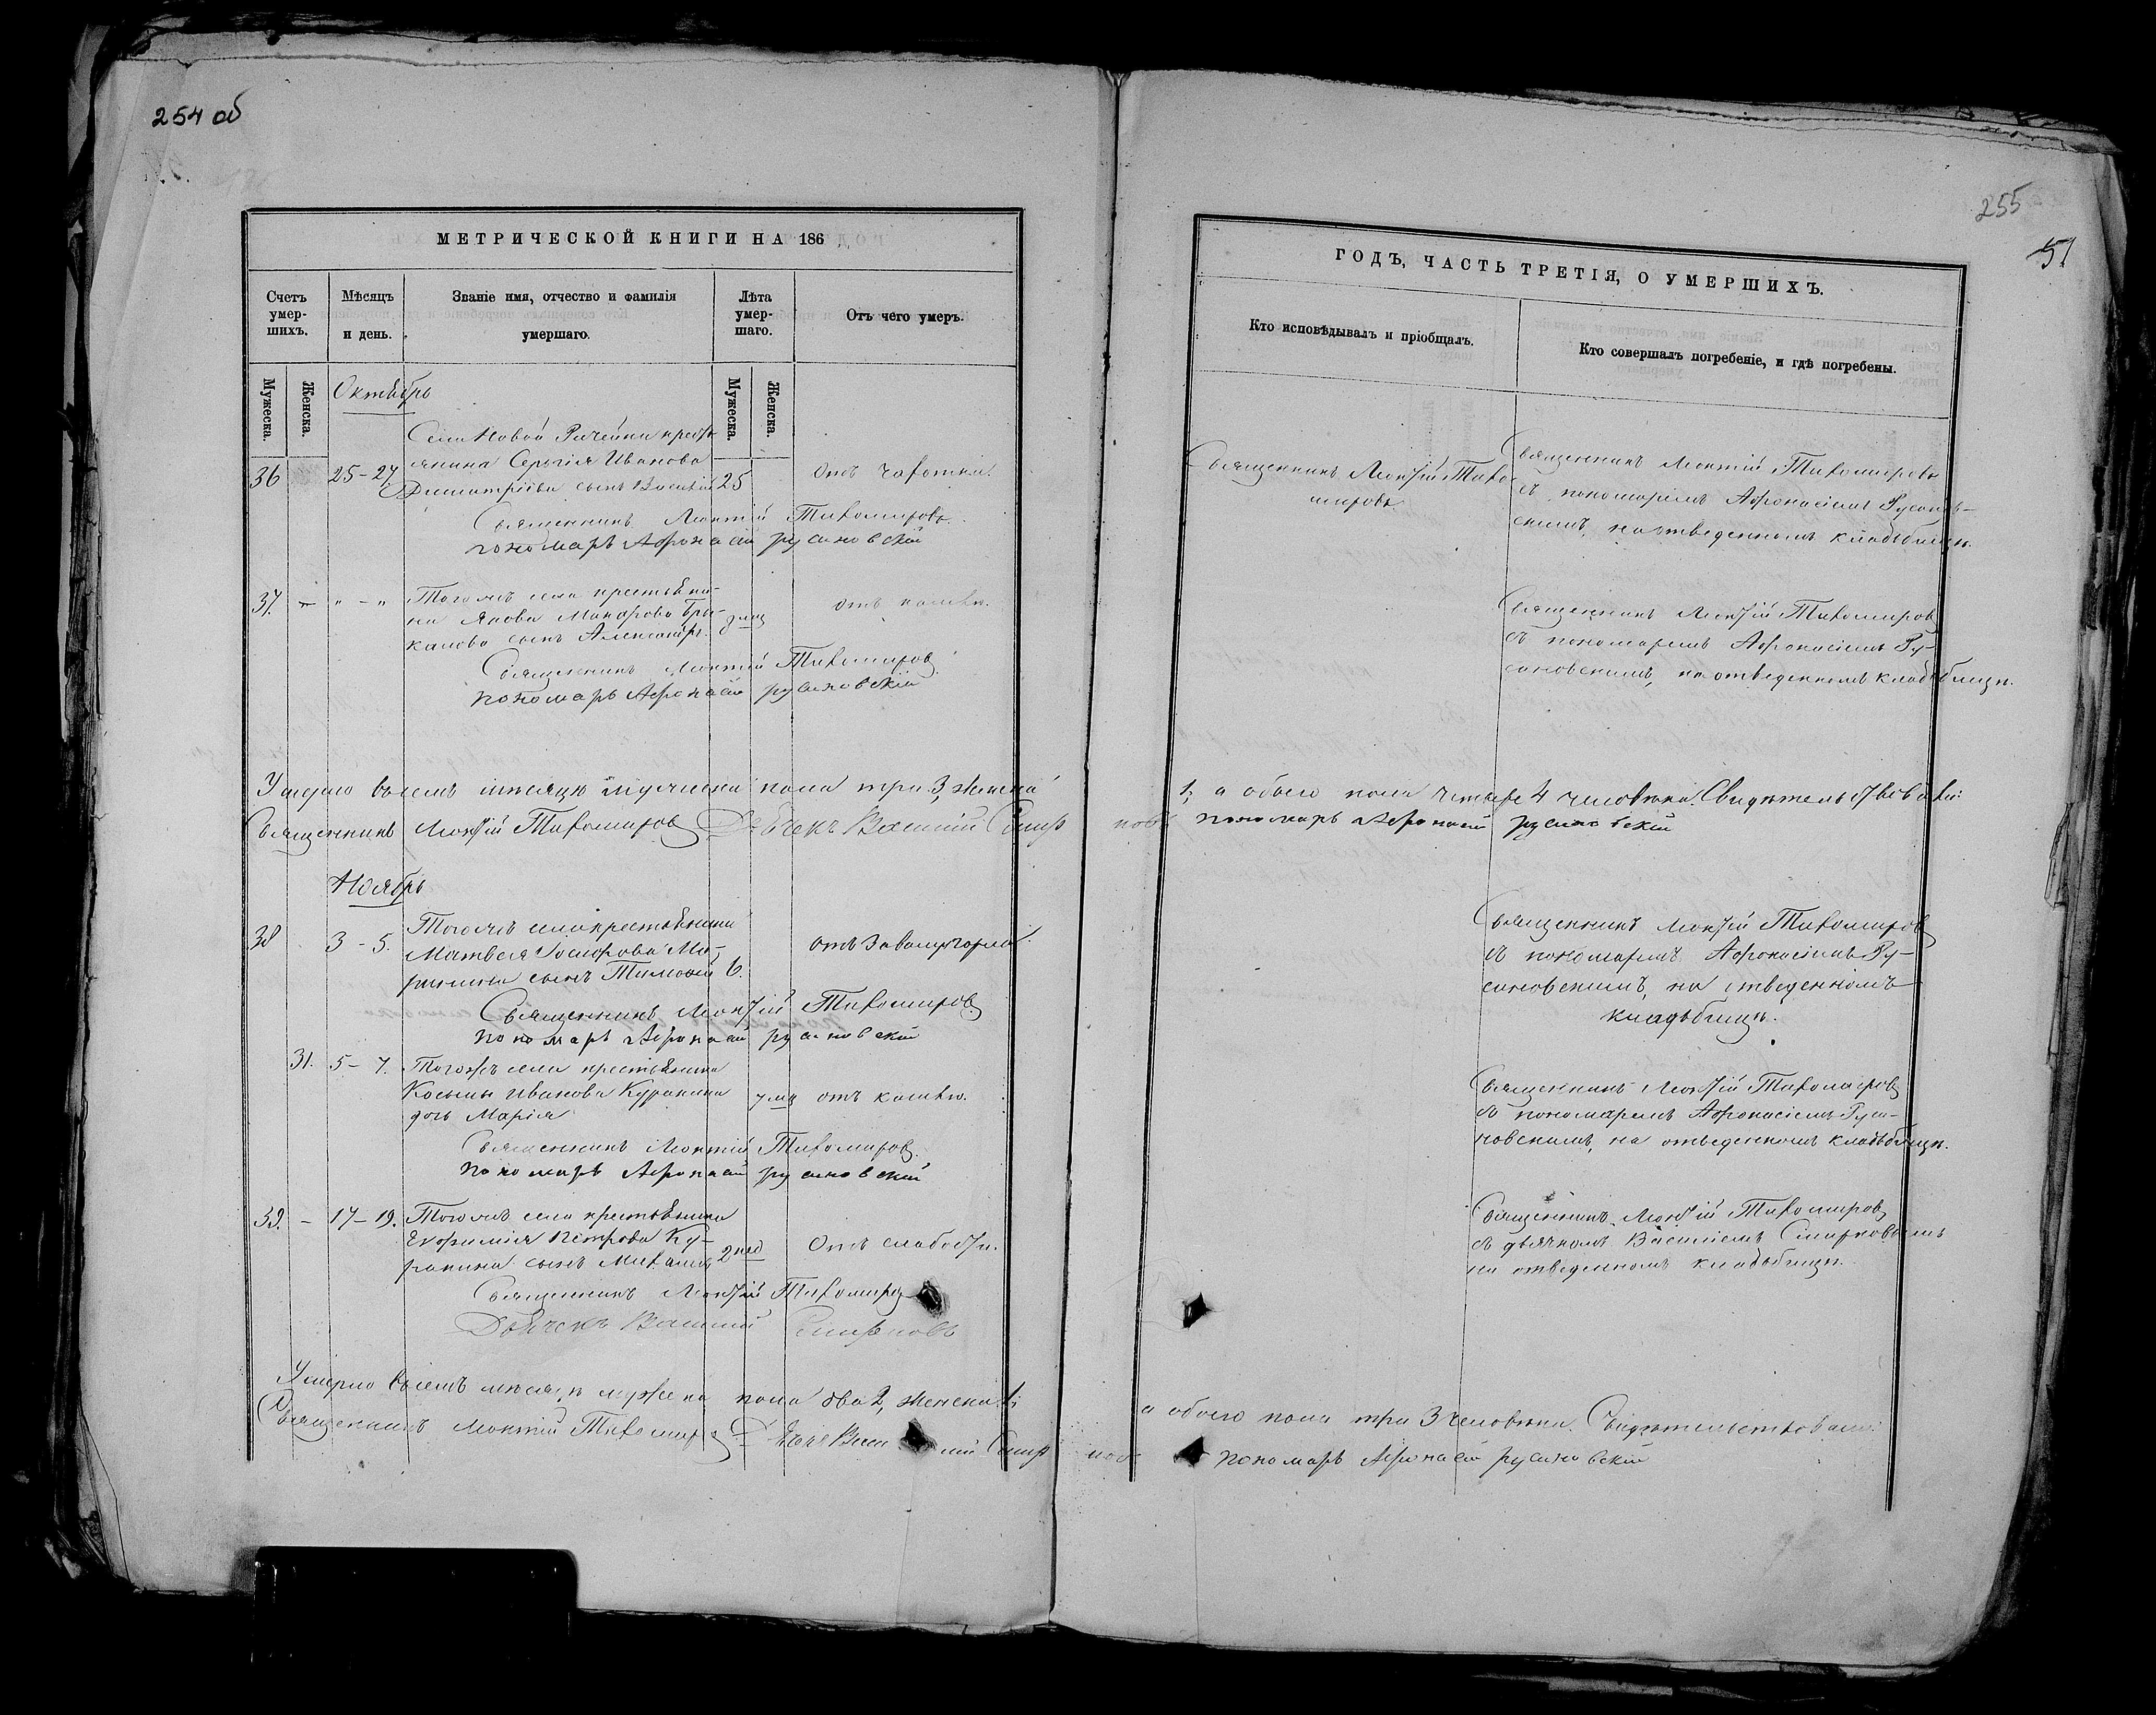 254 об
255
51
МЕТРИЧЕСКОЙ КНИГИ НА 186
Счетъ умер-шихъ.
Мѣсяцъ и день.
Званіе имя, отчество и фамилія умершаго.
Лѣта умер-шаго.
Отъ чего умеръ.
Мужеска.
Женска.
Мужеска.
Женска.
Октябрь
Села Новой Рачейки кресть
янина Сергія Иванова
36 25-27 Димитріева сынъ Василій 25 отъ чахотки.
Священникъ Леонтій Тихомировъ
пономарь Афонасій русановскій
37. - " - " Тогожъ села крестьяни-
на Якова Макарова Бры-
калова сынъ Александръ. отъ кашлю.
Священникъ Леонтій Тихомировъ
пономарь Афонасій русановскій
Умерло въ семъ месяцѣ мужеска пола три 3, женска
Священникъ Леонтій Тихомировъ Дьячекъ Василій Смир
Ноябрь
Тогожъ села крестьянина
38 3-5. Матвея
сынъ Тимофей 6.
Священникъ Леонтій Тихомировъ
пономарь Афонасій русановскій
31. 5-7. Тогожъ села крестьянина
Косьмы Иванова Куракина
дочь Марія отъ кашлю.
Священникъ Леонтій Тихомировъ
пономарь Афонасій русановскій
39. - 17-19. Тогожъ села крестьянина
Ефимія Петрова Ку-
ракина сынъ Михаилъ 2 нед отъ слабости.
Священникъ Леонтій Тихомировъ
Дьячекъ Василій Смирновъ
Умерло въ семъ месяцѣ мужеска пола два 2, женска 1;
Священникъ Леонтій Тихомировъ Дьячекъ Василій Смир
ГОДЪ, ЧАСТЬ ТРЕТІЯ, О УМЕРШИХЪ.
Кто исповѣдывалъ и пріобщалъ.
Кто совершалъ погребеніе, и гдѣ погребены.
Священникъ Леонтій Тихо
мировъ
Священникъ Леонтій Тихомировъ
съ пономаремъ Афонасіемъ Русанов-
скимъ, на отведенномъ кладбищѣ.
Священникъ Леонтій Тихомировъ
съ пономаремъ Афонасіемъ Ру-
сановскимъ, на отведенномъ кладбищѣ.
1; а обоего пола четыре 4 человека. Свидетельствовали:
новъ пономарь Афонасій русановскій
Священникъ Леонтій Тихомировъ
съ пономаремъ Афонасіемъ Ру-
сановскимъ, на отведенномъ
кладбищѣ.
Священникъ Леонтій Тихомировъ
съ пономаремъ Афонасіемъ Руса-
новскимъ, на отведенномъ кладбищѣ.
Священникъ Леонтій Тихомировъ
съ дьячкомъ Василіемъ Смирновымъ
на отведенномъ кладбищѣ.
а обоего пола три 3 человека. Свидетельствовали:
новъ пономарь Афонасій русановскій